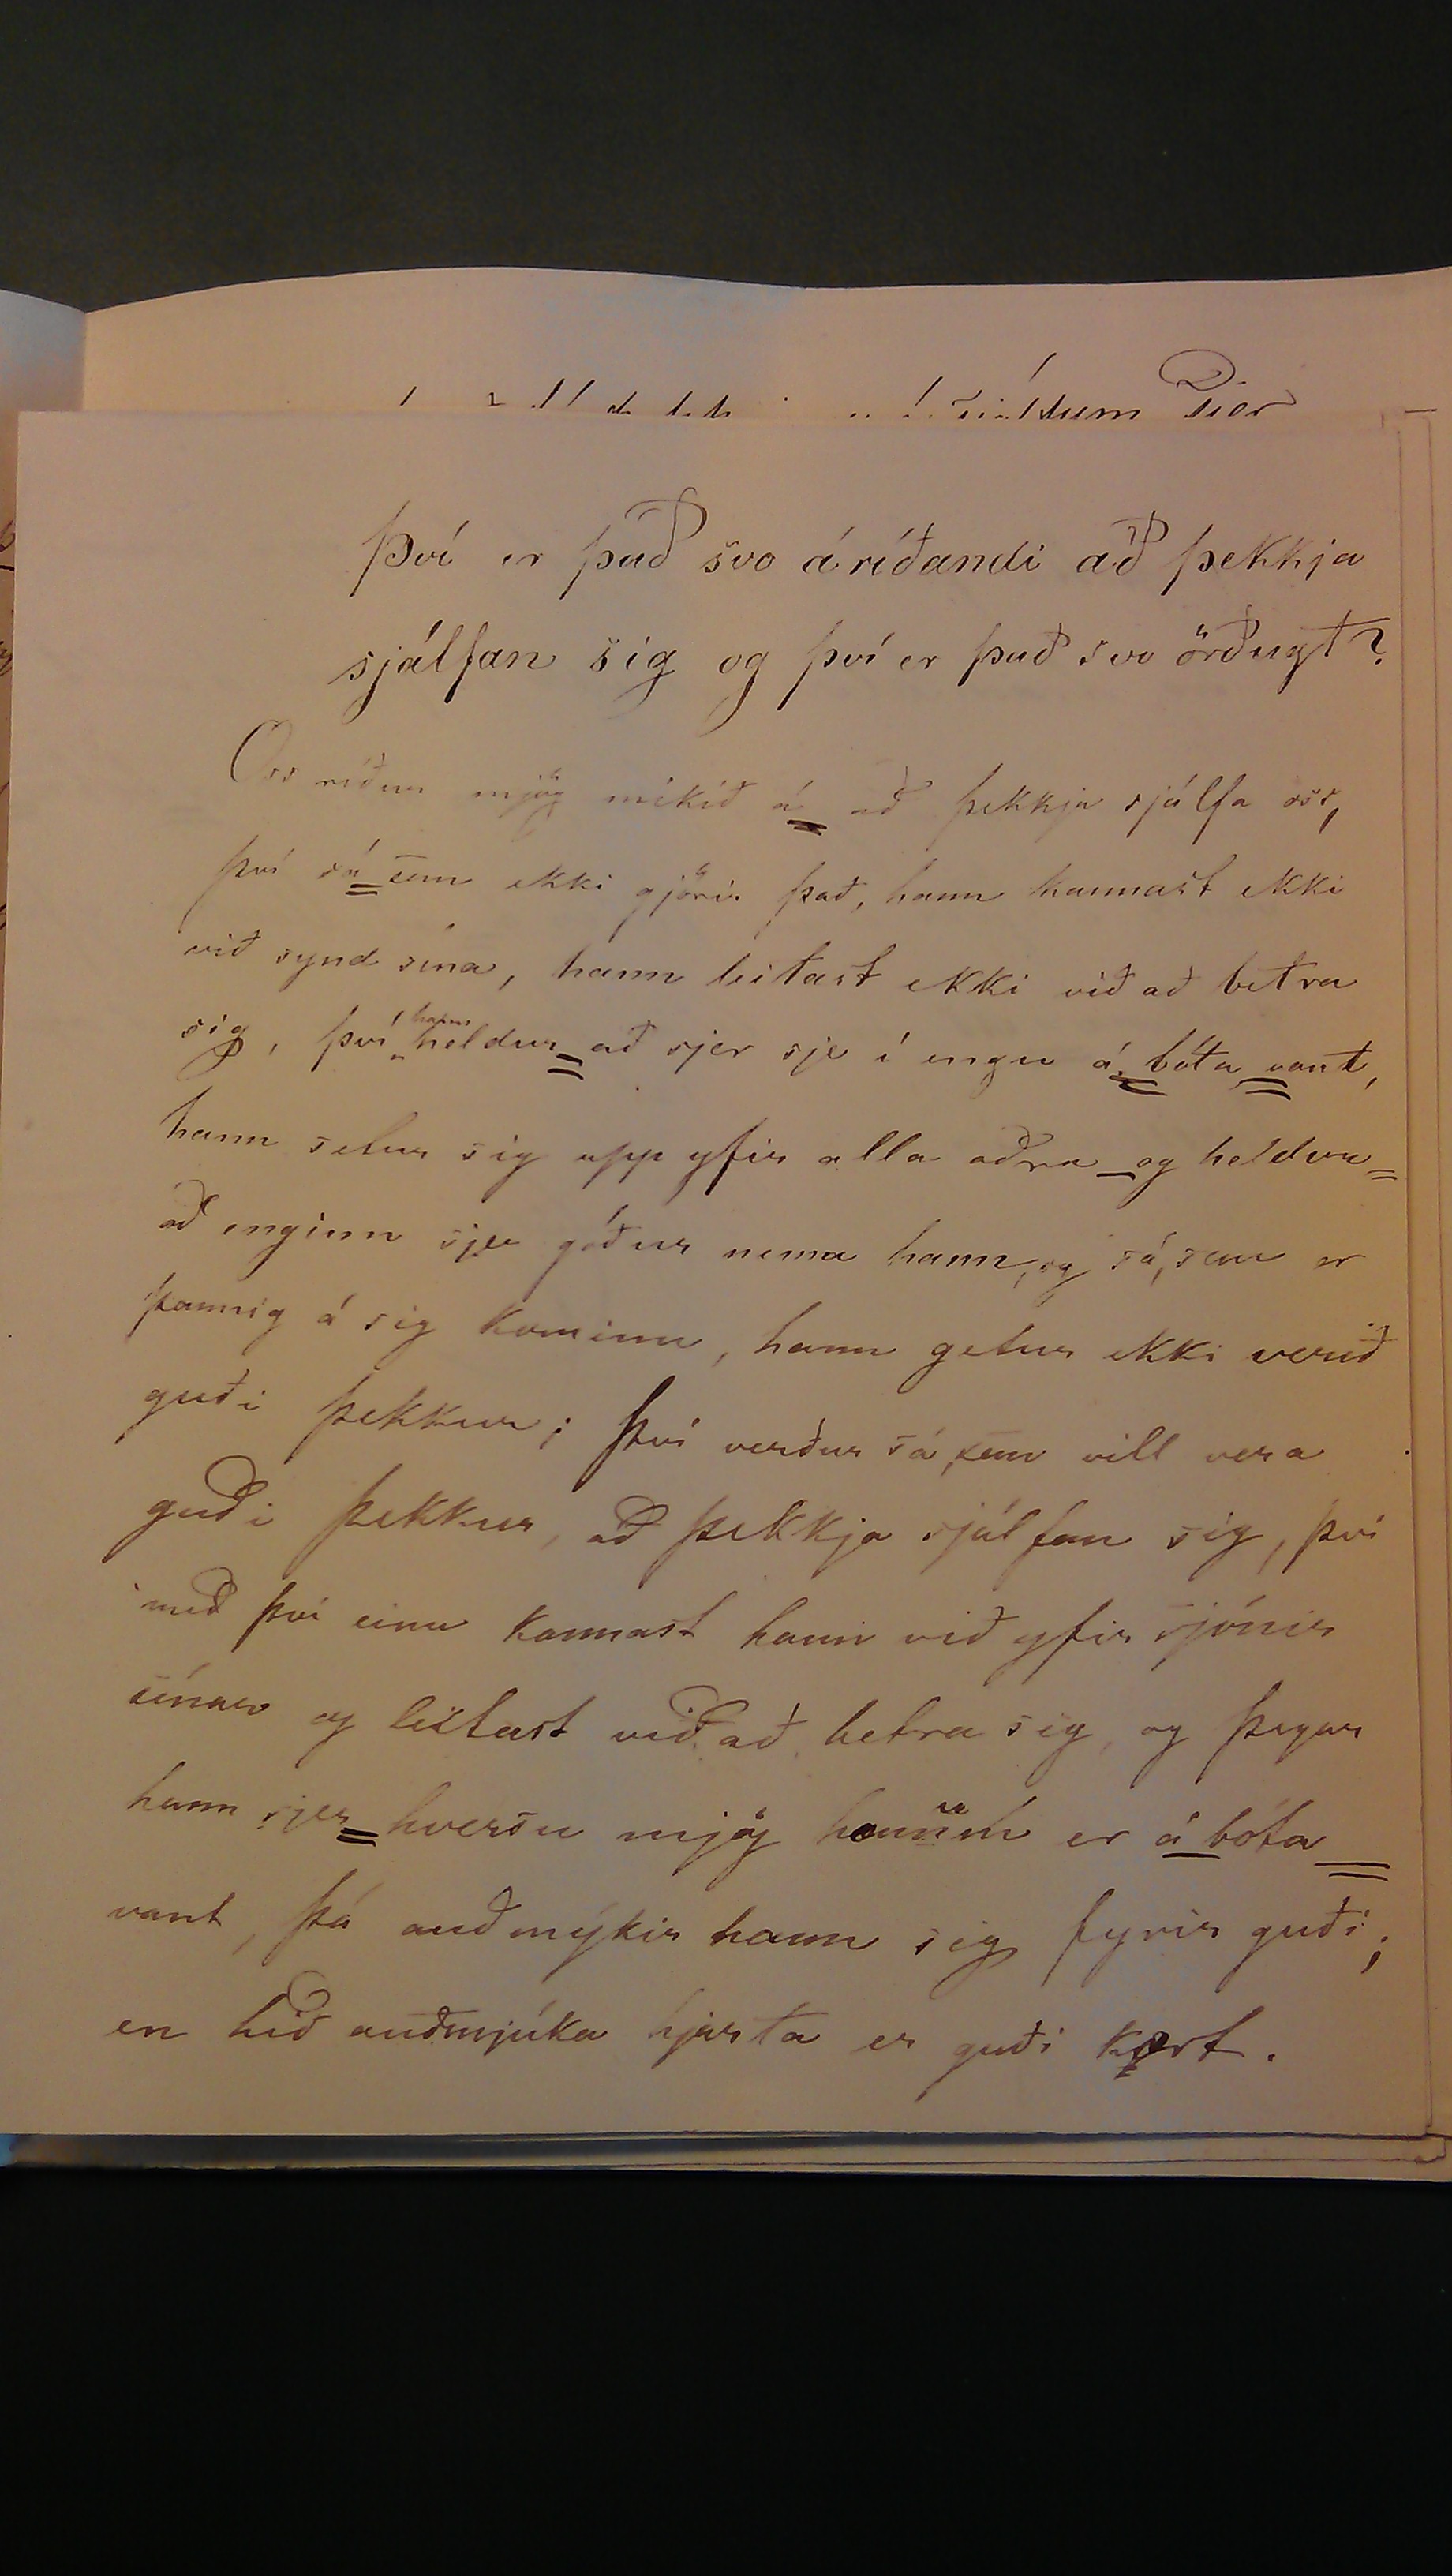 Því er það svo áríðandi að þekkja
sjálfan sig og því er það svo örðugt?
Oss ríður mjög mikið á að þekkja sjálfa oss,
því sá sem ekki gjörir það, hann kannast ekki
við synd sína, hann leitast ekki við að betra
sig, því hann heldur að sjer sje í engu á bóta vant,
hann setur sig upp yfir alla aðra og heldur
að enginn sje góður nema hann, og sá, sem er
þannig á sig kominn, hann getur ekki verið
guði þekkur; Því verður sá, sem vill vera
guði þekkur, að þekkja sjálfan sig, því
með því einu kannast hann við yfir sjónir
sínar og leitast við að betra sig, og þegar
hann sjer hversu mjög er á bóta
vant, þá auðmýkir hann sig fyrir guði;
en hið auðmjúka hjarta er guði kært.